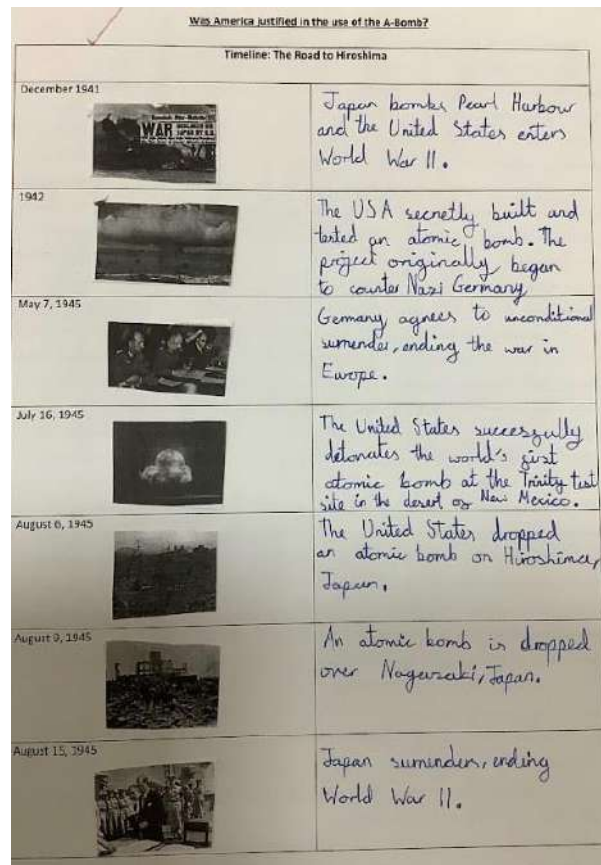 Was America justified in the use of the A-Bomb?
Timeline: The Road to Hiroshima
December 1941
WAR
Japan bombs Pearl Harbour
and the United States enters
World War II.
1942
The USA secretly built and
tested an atomic bomb. The
project originally began
to counter Nazi Germany
May 7, 1945
Germany agrees to unconditional
surrender, ending the war in
Europe.
July 16, 1945
The United States successfully
detonates the world's first
atomic bomb at the Trinity test
site in the desert of New Mexico.
August 6, 1945
The United States dropped
an atomic bomb on Hiroshima,
Japan.
August 9, 1945
An atomic bomb is dropped
over Nagasaki, Japan.
August 15, 1945
Japan surrenders, ending
World War II.